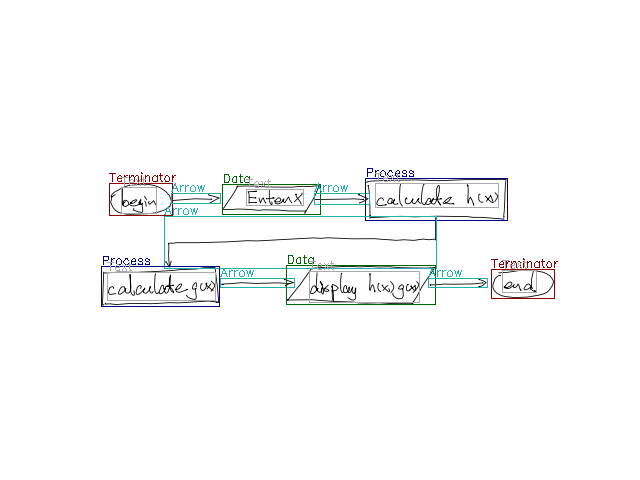 Terminator
Text
begin
Arrow
Data
Text
Enter x
Arrow
Process
Text
calculate h(x)
Arrow
Process
Text
calculate g(x)
Arrow
Data
Text
display h(x) g(x)
Arrow
Terminator
Text
end